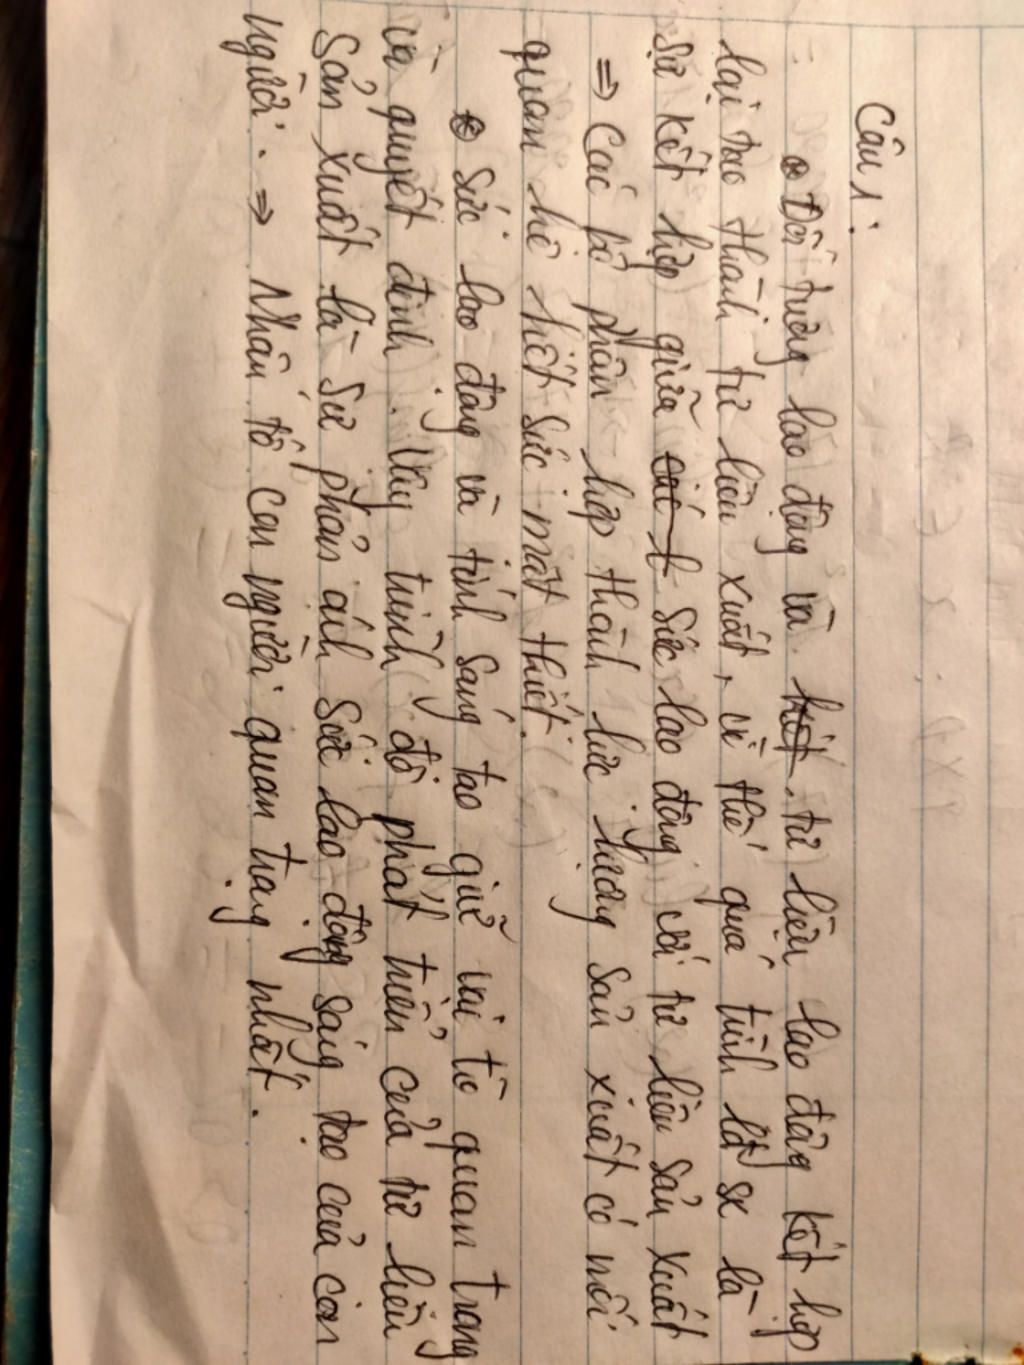 Câu 1:
* Đối tượng lao động và tư liệu lao động kết hợp
lại tạo thành tư liệu xuất, vì thế quá trình lđ sx là
sự kết hợp giữa sức lao động với tư liệu sản xuất
⇒ Các bộ phận hợp thành lực lượng sản xuất có mối
quan hệ hết sức mật thiết.
* Sức lao động và tính sáng tạo giữ vai trò quan trọng
và quyết định. Vậy trình độ phát triển của tư liệu
sản xuất là sự phản ánh sức lao động sáng tạo của con
người. ⇒ Nhân tố con người quan trọng nhất.